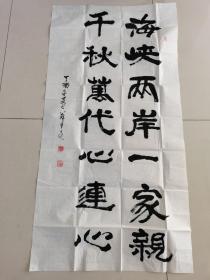 海峡两岸一家親
千秋萬代心連心
丁酉